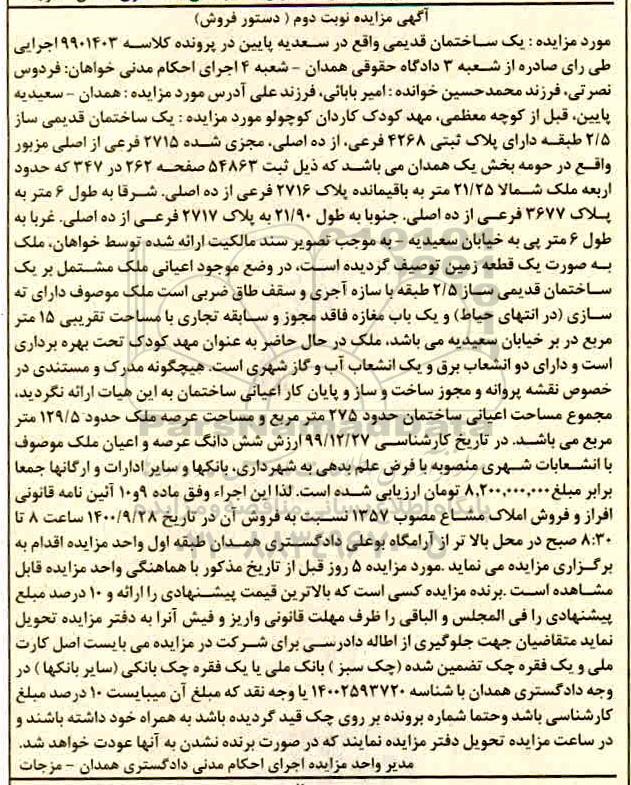 آگهی مزایده نوبت دوم ( دستور فروش)
مورد مزایده : یک ساختمان قدیمی واقع در سعدیه پایین در پرونده کلاسه ۹۹۰۱۴۰۳ اجرایی
طی رای صادره از شعبه ۳ دادگاه حقوقی همدان - شعبه ۴ اجرای احکام مدنی خواهان: فردوس
نصرتی، فرزند محمدحسین خوانده : امیر بابائی، فرزند علی آدرس مورد مزایده : همدان - سعیدیه
پایین، قبل از کوچه معظمی، مهد کودک کاردان کوچولو مورد مزایده : یک ساختمان قدیمی ساز
۲/۵ طبقه دارای پلاک ثبتی ۴۲۶۸ فرعی، از ده اصلی، مجزی شده ۲۷۱۵ فرعی از اصلی مزبور
واقع در حومه بخش یک همدان می باشد که ذیل ثبت ۵۴۸۶۳ صفحه ۲۶۲ در ۳۴۷ که حدود
اربعه ملک شمالا ۲۱/۲۵ متر به باقیمانده پلاک ۲۷۱۶ فرعی از ده اصلی. شرقا به طول ۶ متر به
پلاک ۳۶۷۷ فرعی از ده اصلی. جنوبا به طول ۲۱/۹۰ به پلاک ۲۷۱۷ فرعی از ده اصلی. غربا به
طول ۶ متر پی به خیابان سعیدیه - به موجب تصویر سند مالکیت ارائه شده توسط خواهان، ملک
به صورت یک قطعه زمین توصیف گردیده است، در وضع موجود اعیانی ملک مشتمل بر یک
ساختمان قدیمی ساز ۲/۵ طبقه با سازه آجری و سقف طاق ضربی است ملک موصوف دارای ته
سازی (در انتهای حیاط) و یک باب مغازه فاقد مجوز و سابقه تجاری با مساحت تقریبی ۱۵ متر
مربع در بر خیابان سعیدیه می باشد، ملک در حال حاضر به عنوان مهد کودک تحت بهره برداری
است و دارای دو انشعاب برق و یک انشعاب آب و گاز شهری است. هیچگونه مدرک و مستندی در
خصوص نقشه پروانه و مجوز ساخت و ساز و پایان کار اعیانی ساختمان به این هیات ارائه نگردید،
مجموع مساحت اعیانی ساختمان حدود ۲۷۵ متر مربع و مساحت عرصه ملک حدود ۱۲۹/۵ متر
مربع می باشد. در تاریخ کارشناسی ۹۹/۱۲/۲۷ ارزش شش دانگ عرصه و اعیان ملک موصوف
با انشعابات شهری منصوبه با فرض علم بدهی به شهرداری، بانکها و سایر ادارات و ارگانها جمعا
برابر مبلغ ۸,۲۰۰,۰۰۰,۰۰۰ تومان ارزیابی شده است. لذا این اجراء وفق ماده ۹و۱۰ آئین نامه قانونی
افراز و فروش املاک مشاع مصوب ۱۳۵۷ نسبت به فروش آن در تاریخ ۱۴۰۰/۹/۲۸ ساعت ۸ تا
۸:۳۰ صبح در محل بالا تر از آرامگاه بوعلی دادگستری همدان طبقه اول واحد مزایده اقدام به
برگزاری مزایده می نماید .مورد مزایده ۵ روز قبل از تاریخ مذکور با هماهنگی واحد مزایده قابل
مشاهده است .برنده مزایده کسی است که بالاترین قیمت پیشنهادی را ارائه و ۱۰ درصد مبلغ
پیشنهادی را فی المجلس و الباقی را ظرف مهلت قانونی واریز و فیش آنرا به دفتر مزایده تحویل
نماید متقاضیان جهت جلوگیری از اطاله دادرسی برای شرکت در مزایده می بایست اصل کارت
ملی و یک فقره چک تضمین شده (چک سبز ) بانک ملی یا یک فقره چک بانکی (سایر بانکها ) در
وجه دادگستری همدان با شناسه ۱۴۰۰۲۵۹۳۷۲۰ یا وجه نقد که مبلغ آن میبایست ۱۰ درصد مبلغ
کارشناسی باشد وحتما شماره پرونده بر روی چک قید گردیده باشد به همراه خود داشته باشند و
در ساعت مزایده تحویل دفتر مزایده نمایند که در صورت برنده نشدن به آنها عودت خواهد شد.
مدیر واحد مزایده اجرای احکام مدنی دادگستری همدان - مزجات